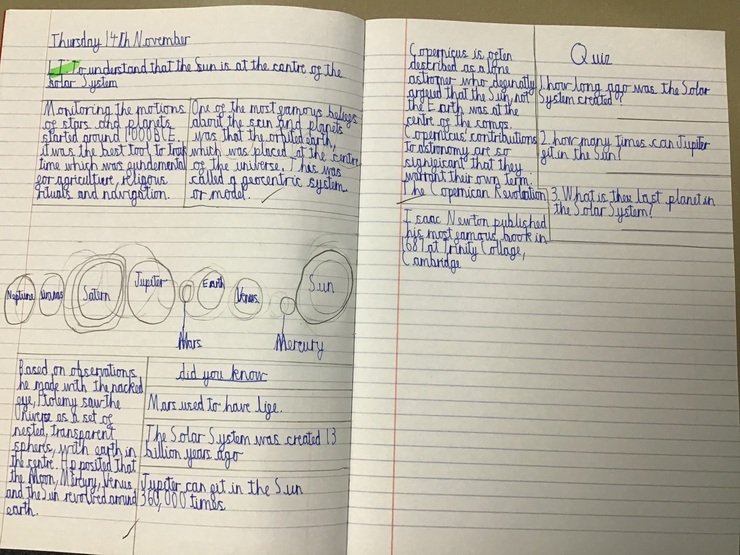 Thursday 14th November
L.I. To understand that the Sun is at the centre of the
Solar System
Monitoring the motions
of stars and planets
started around 1000 BCE.
it was the best tool to Track
time which was fundemental
for agriculture, religous
rituals and navigation.
One of the most famous beliefs
about the sun and planets
was that the orbited earth,
which was placed at the centre
of the universe. This was
called a geocentric system
or model.
Neptune
Uranus
Saturn
Jupiter
Mars
Earth
Venus
Mercury
Sun
Based on observations
he made with the nacked
eye, Ptolemy saw the
Universe as a set of
nested, transparent
spheres, with earth in
the centre. He posited that
the Moon, Mercury, Venus,
and the Sun revolved around
earth.
did you know
Mars used to have life.
The Solar System was created 13
billion years ago
Jupiter can fit in the Sun
360,000 times
Copernicus is often
described as a lone
astroner who defiantly
argued that the Sun, not
the Earth was at the
centre of the comos.
Copernicus' contributions
to astronomy are so
significant that they
warrant their own term.
The Copernican Revolution
Isaac Newton published
his most famous book in
1687 at Trinity Collage,
Cambridge
Quiz
1. how long ago was the Solar
System created?
2. how many times can Jupiter
fit in the Sun?
3. What is thee last planet in
the Solar System?